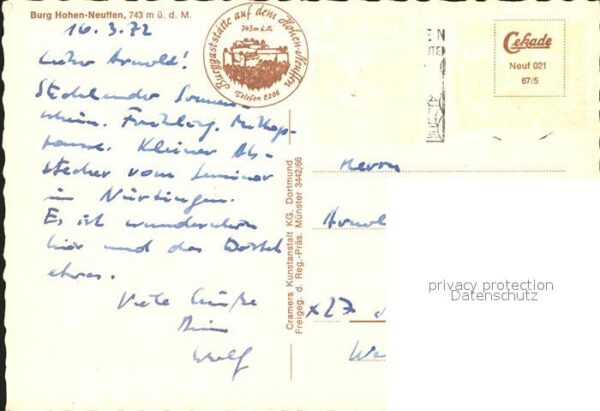 Burg Hohen-Neuffen, 743 m ü. d. M.
16.3.72
Lieber Arnold!
Strahlender Sonnen
schein. Frühling. Mittags
pause. Kleiner Ab-
stecher vom Seminar
in Nürtingen.
Es ist wunderschön
hier und das
etwas.
Viele Grüße
Dein
Wolf
Burggaststätte auf dem Hohen-Neuffen
743m ü.M.
Telefon 2206
Cramers Kunstanstalt KG. Dortmund
Freigeg. d. Reg.-Präs. Münster 3442/66
Cekade
Neuf 021
67/5
Herrn
Arnol
x27
We
privacy protection
Datenschutz